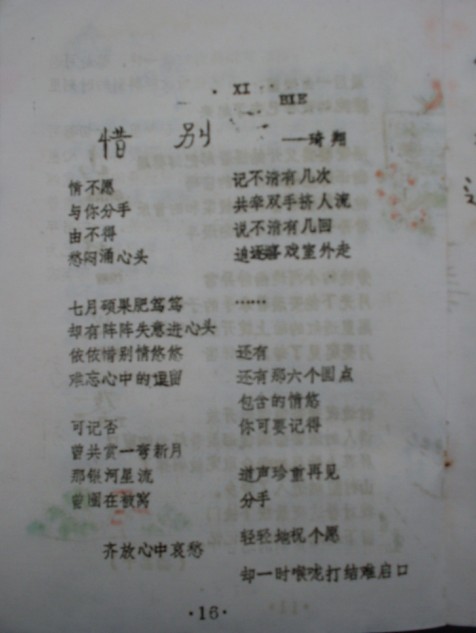 XI BIE
惜 别
——琦翔
情不愿
与你分手
由不得
愁闷涌心头
七月硕果肥笃笃
却有阵阵失意进心头
依依惜别情悠悠
难忘心中的逗留
可记否
曾共赏一弯新月
那银河星流
曾围在被窝
齐放心中哀愁
记不清有几次
共牵双手挤人流
说不清有几回
追逐嬉戏室外走
……
还有
还有那六个圆点
包含的情悠
你可要记得
道声珍重再见
分手
轻轻地祝个愿
却一时喉咙打结难启口
·16·